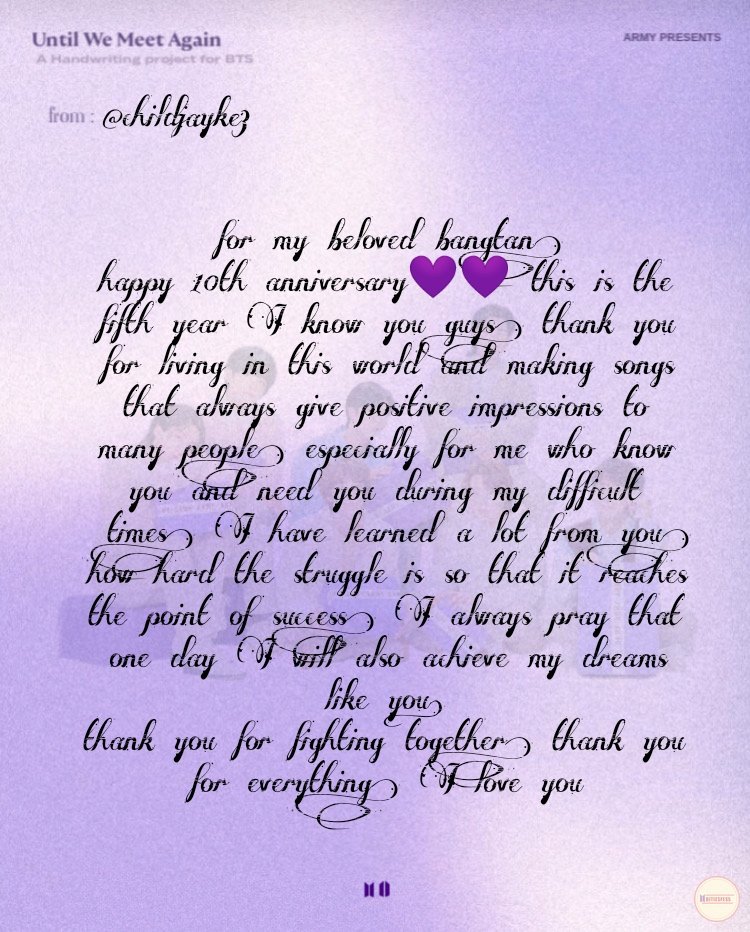 Until We Meet Again
ARMY PRESENTS
A Handwriting project for BTS
from : @childjayke3
for my beloved bangtan,
happy 10th anniversary💜💜 this is the
fifth year I know you guys, thank you
for living in this world and making songs
that always give positive impressions to
many people, especially for me who know
you and need you during my difficult
times, I have learned a lot from you,
how hard the struggle is so that it reaches
the point of success, I always pray that
one day I will also achieve my dreams
like you,
thank you for fighting together, thank you
for everything, I love you